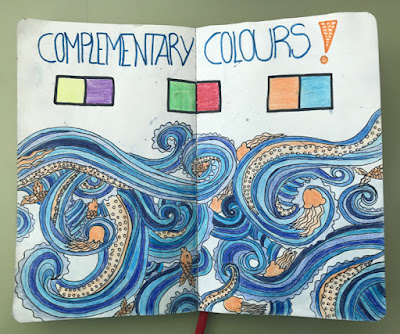 COMPLEMENTARY COLOURS!